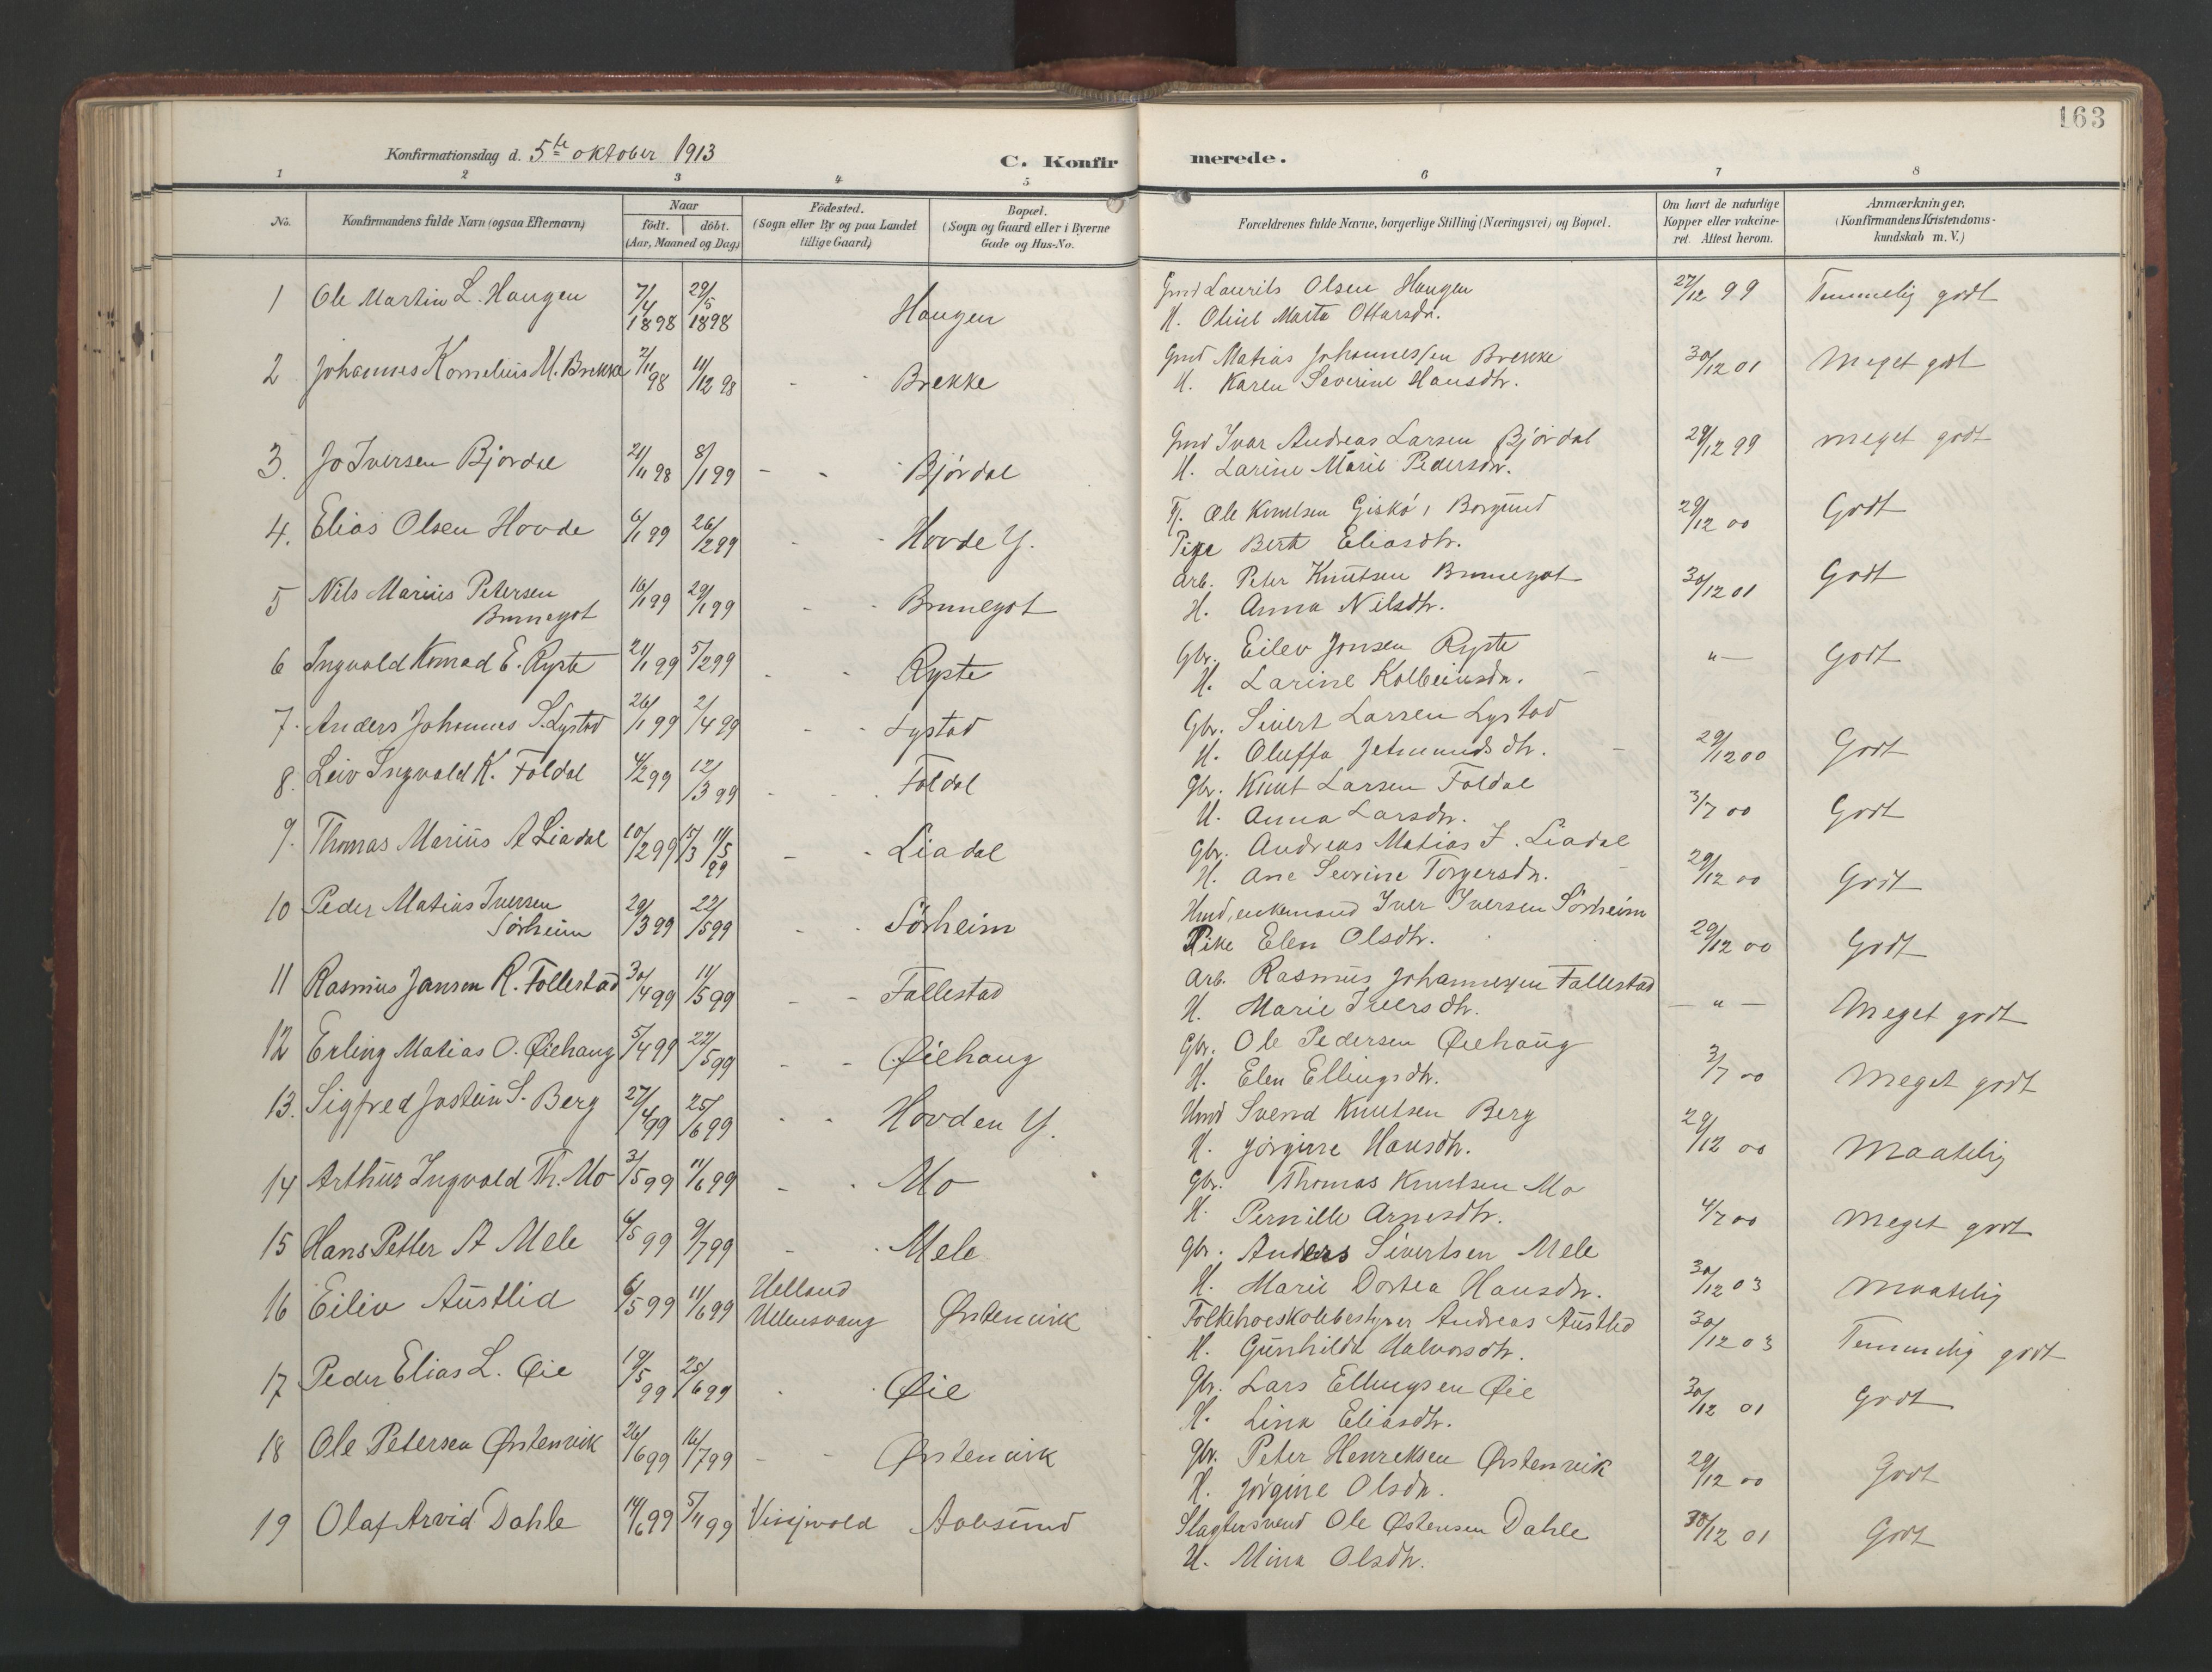 163
Konfirmationsdag d. 5te oktober 1913
C. Konfirmerede.
1 2 3 4 5 6 7 8
No. Konfirmandens fulde Navn (ogsaa Efternavn) Naar födt. döbt. (Aar, Maaned og Dag) Födested. (Sogn eller By og paa Landet tillige Gaard) Bopæl. (Sogn og Gaard eller i Byerne Gade og Hus-No. Forældrenes fulde Navne, borgerlige Stilling (Næringsvei) og Bopæl. Om havt de naturlige Kopper eller vakcineret. Attest herom. Anmærkninger. (Konfirmandens Kristendomskundskab m. V.)
1 Ole Martin L. Haugen 7/4 1898 29/5 1898 Haugen Gmd Laurits Olsen Haugen 27/12 99 Temmelig godt
H. Oline Marta Ottarsdr.
2 Johannes Kornelius M. Brekke 2/11 98 11/12 98 - - Brekke Gmd Matias Johannessen Brekke 30/12 01 Meget godt
H. Karen Severine Hansdtr.
3. Jo Iversen Bjørdal 21/11 98 8/1 99 - - Bjørdal Gmd Ivar Andreas Larsen Bjørdal 29/12 99 meget godt
H. Larine Marie Pedersdr.
4. Elias Olsen Hovde 6/1 99 26/2 99 - - Hovde Y. Ole Knutsen Giskø, Borgund 29/12 00 Godt
Pige Berte Eliasdtr.
5 Nils Marius Petersen Brunegot 16/1 99 29/1 99 - - Brunegot Arb. Peter Knutsen Brunegot 30/12 01 Godt
H. Anna Nilsdtr.
6 Ingvald Konrad E. Ryste 21/1 99 5/2 99 - - Ryste Gbr. Eilev Jonsen Ryste "- Godt
H. Larine Kolbeinsdr.
7. Anders Johannes S. Lystad 26/1 99 2/4 99 - - Lystad Gbr. Sivert Larsen Lystad 29/12 00 Godt
H. Oluffa Jetmundsdtr.
8. Leiv Ingvald K. Foldal 4/2 99 12/3 99 - - Foldal Gbr. Knut Larsen Foldal 3/7 00 Godt
H. Anna Larsdr.
9. Thomas Marius A Liadal 10/2 99 15/3 11/5 99 - - Liadal Gbr. Andreas Matias J. Liadal 29/12 00 Godt
H. Ane Sevrine Torgersdr.
10 Peder Matias Iversen Sørheim 29/3 99 22/5 99 - - Sørheim Hmd, enkemand Iver Iversen Sørheim 29/12 00 Godt
Pike Elen Olsdtr.
11 Rasmus Jansen R. Follestad 30/4 99 11/5 99 - - Follestad Arb. Rasmus Johannessen Follestad - " - Meget godt
H. Marie Iversdtr.
12 Erling Matias O. Øiehaug 5/4 99 22/5 99 - - Øiehaug Gbr. Ole Pedersen Øiehaug 3/7 00 Meget godt
H. Elen Ellingsdtr.
13. Sigfred Jostein S. Berg 27/4 99 25/6 99 - - Hovden Y. Hmd Svend Knutsen Berg 29/12 00 Maatelig
H. Jørgine Hansdtr.
14 Arthur Ingvald Th. Mo 3/5 99 11/6 99 - - Mo Gbr. Thomas Knutsen Mo 4/7 00 Meget godt
H. Pernille Arnesdtr.
15 Hans Petter A Mele 6/5 99 9/7 99 - - Mele Gbr. Anders Sivertsen Mele 30/12 03 Maatelig
H. Marie Dortea Hansdr.
16 Eiliv Austlid 6/5 99 11/6 99 Helland Ullensvang Ørstenvik Folkehøiskolebestyrer Andreas Austlid 30/12 03 Temmelig godt
H. Gunhild Halvorsdtr.
17 Peder Elias L. Øie 19/5 99 25/6 99 - - Øie Gbr. Lars Ellingsen Øie 30/12 01 Godt
H. Lina Eliasdtr.
18 Ole Petersen Ørstenvik 26/6 99 16/7 99 - - Ørstenvik Gbr. Peter Henriksen Ørstenvik 29/12 00 Godt
H. Jørgine Olsdr.
19 Olaf Arvid Dahle 14/6 99 5/11 99 Aalesund Slagtersvend Ole Østensen Dahle 30/12 01 Godt
H. Mina Olsdtr.